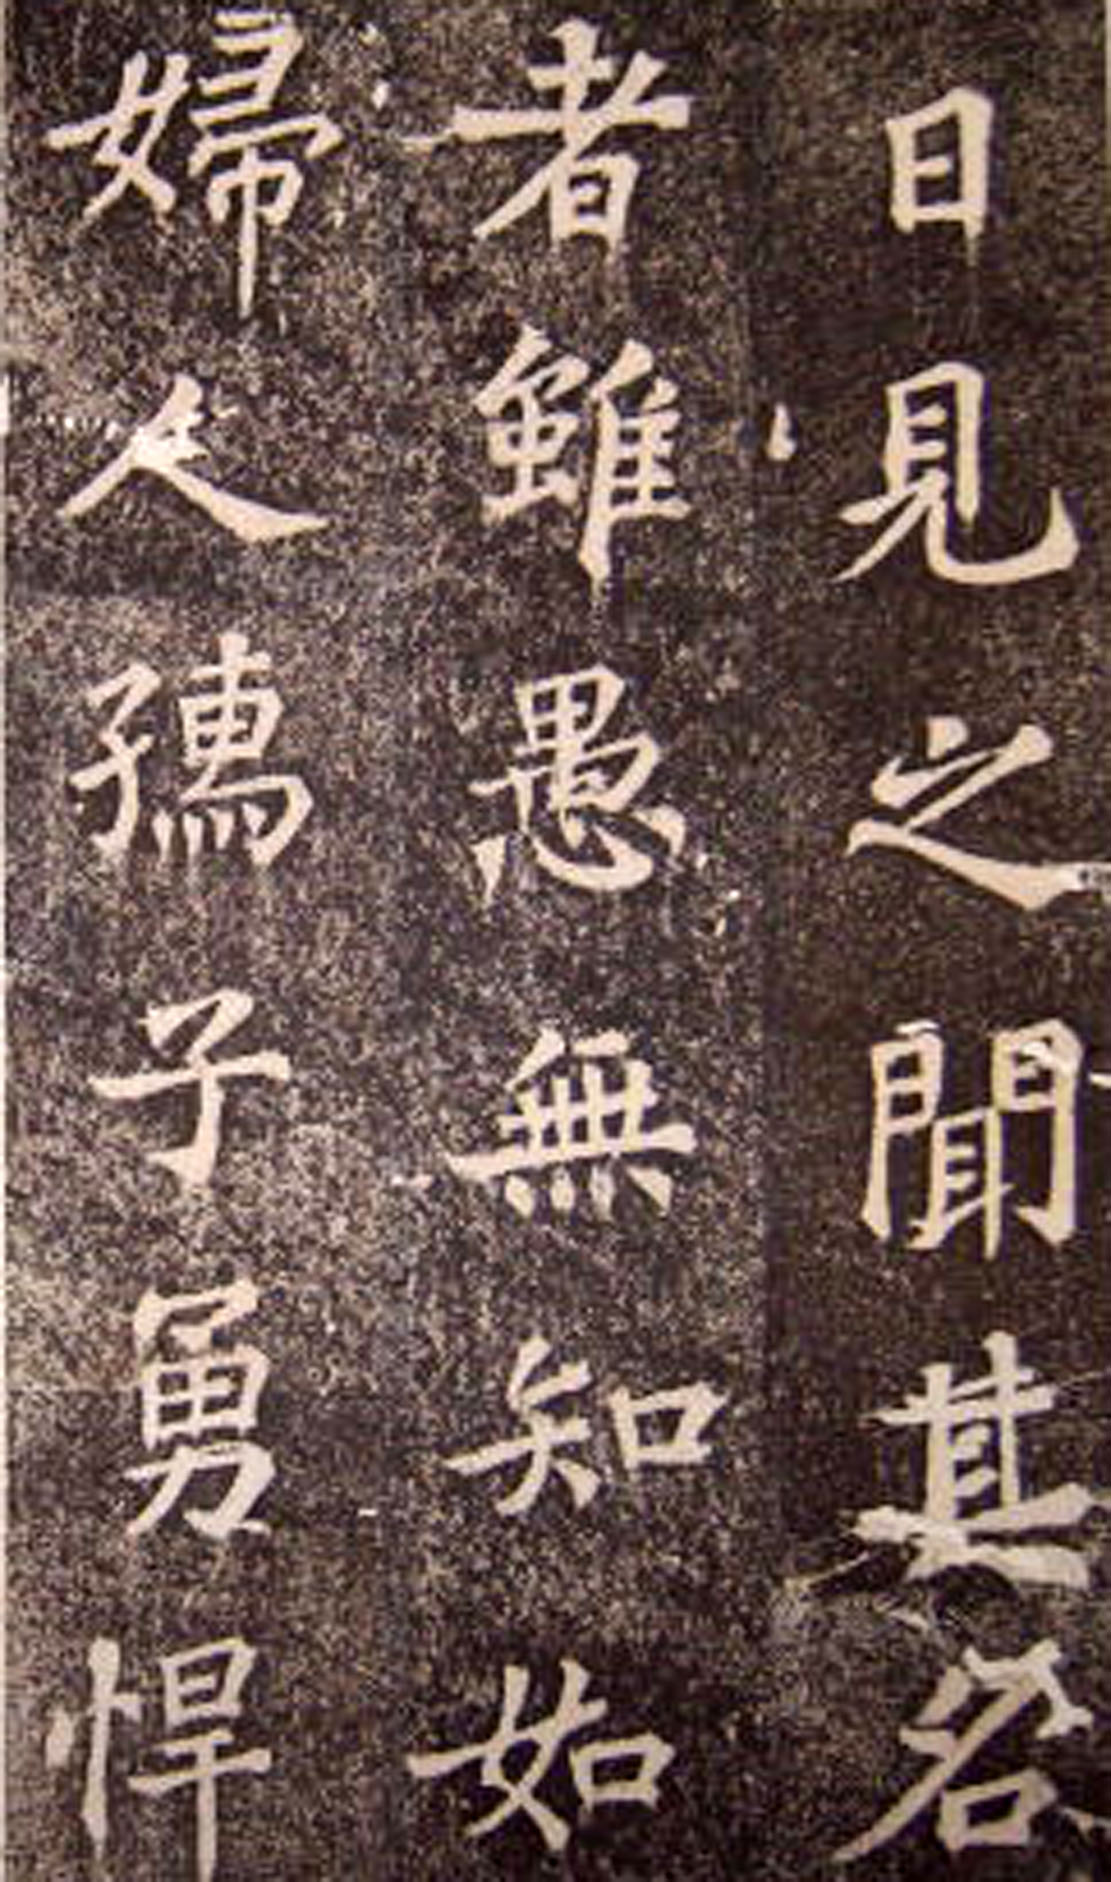 日見之聞其名
者雖愚無知如
婦人孺子勇悍